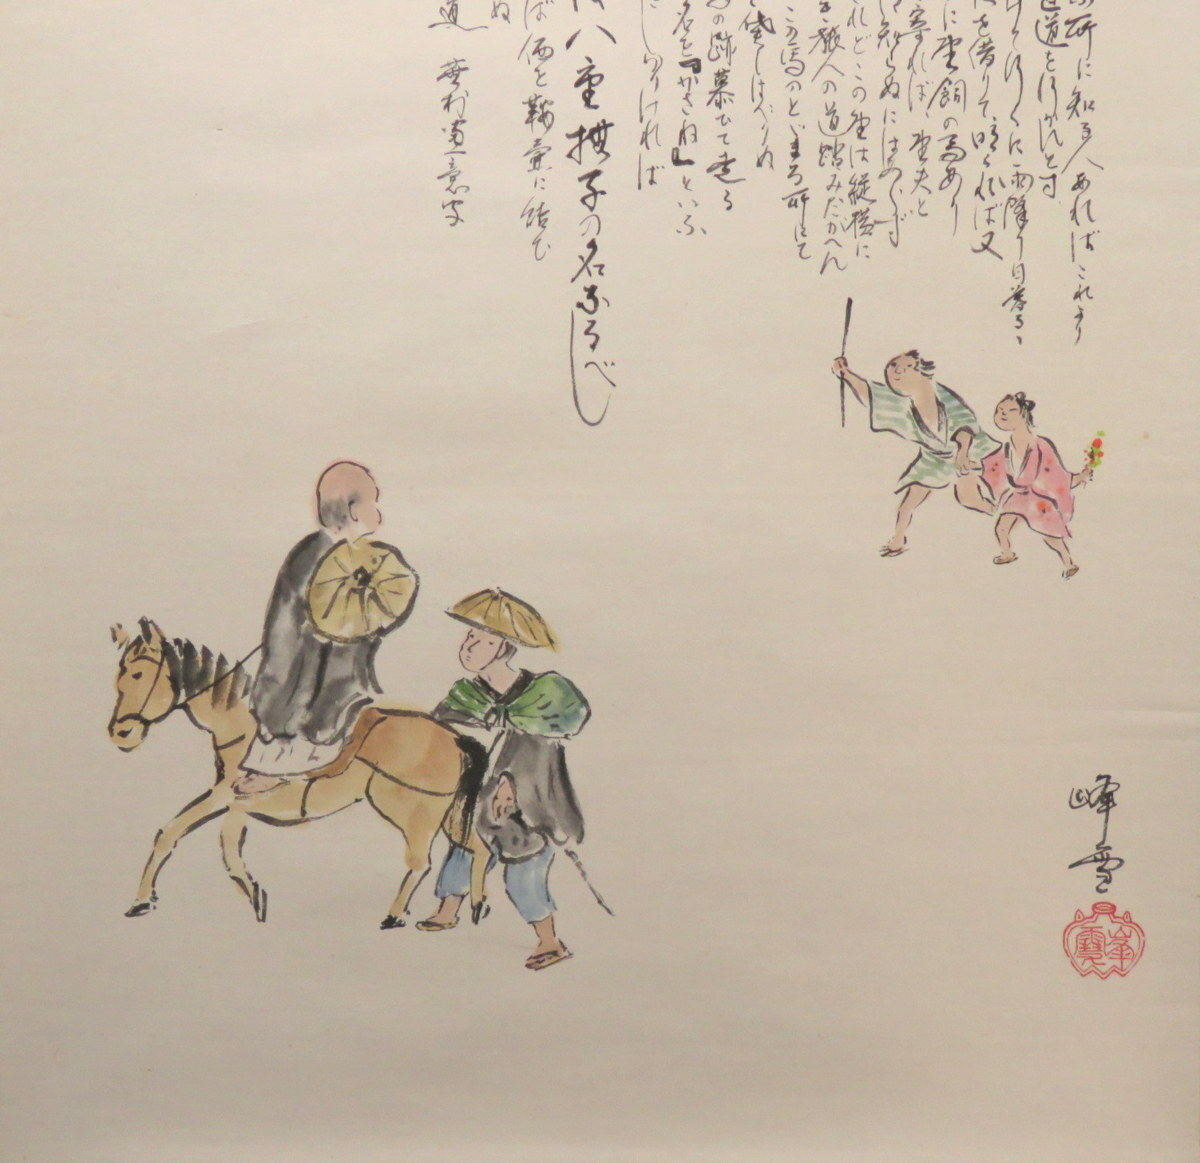 所に知る人あればこれより
直道を行かんとす
けて行くに雨降り日暮るゝ
を借りて明くれば又
に野飼の馬あり
寄れば野夫と
知らぬにはあらず
れどこの野は縦横に
旅人の道踏みたがへん
この馬のとゞまる所にて
貸しはべりぬ
の跡慕ひて走る
名を『かさね』といふ
しかりければ
八重撫子の名なるべし
ば価を鞍壷に結び
ぬ
道 蕪村画意写
峰雪